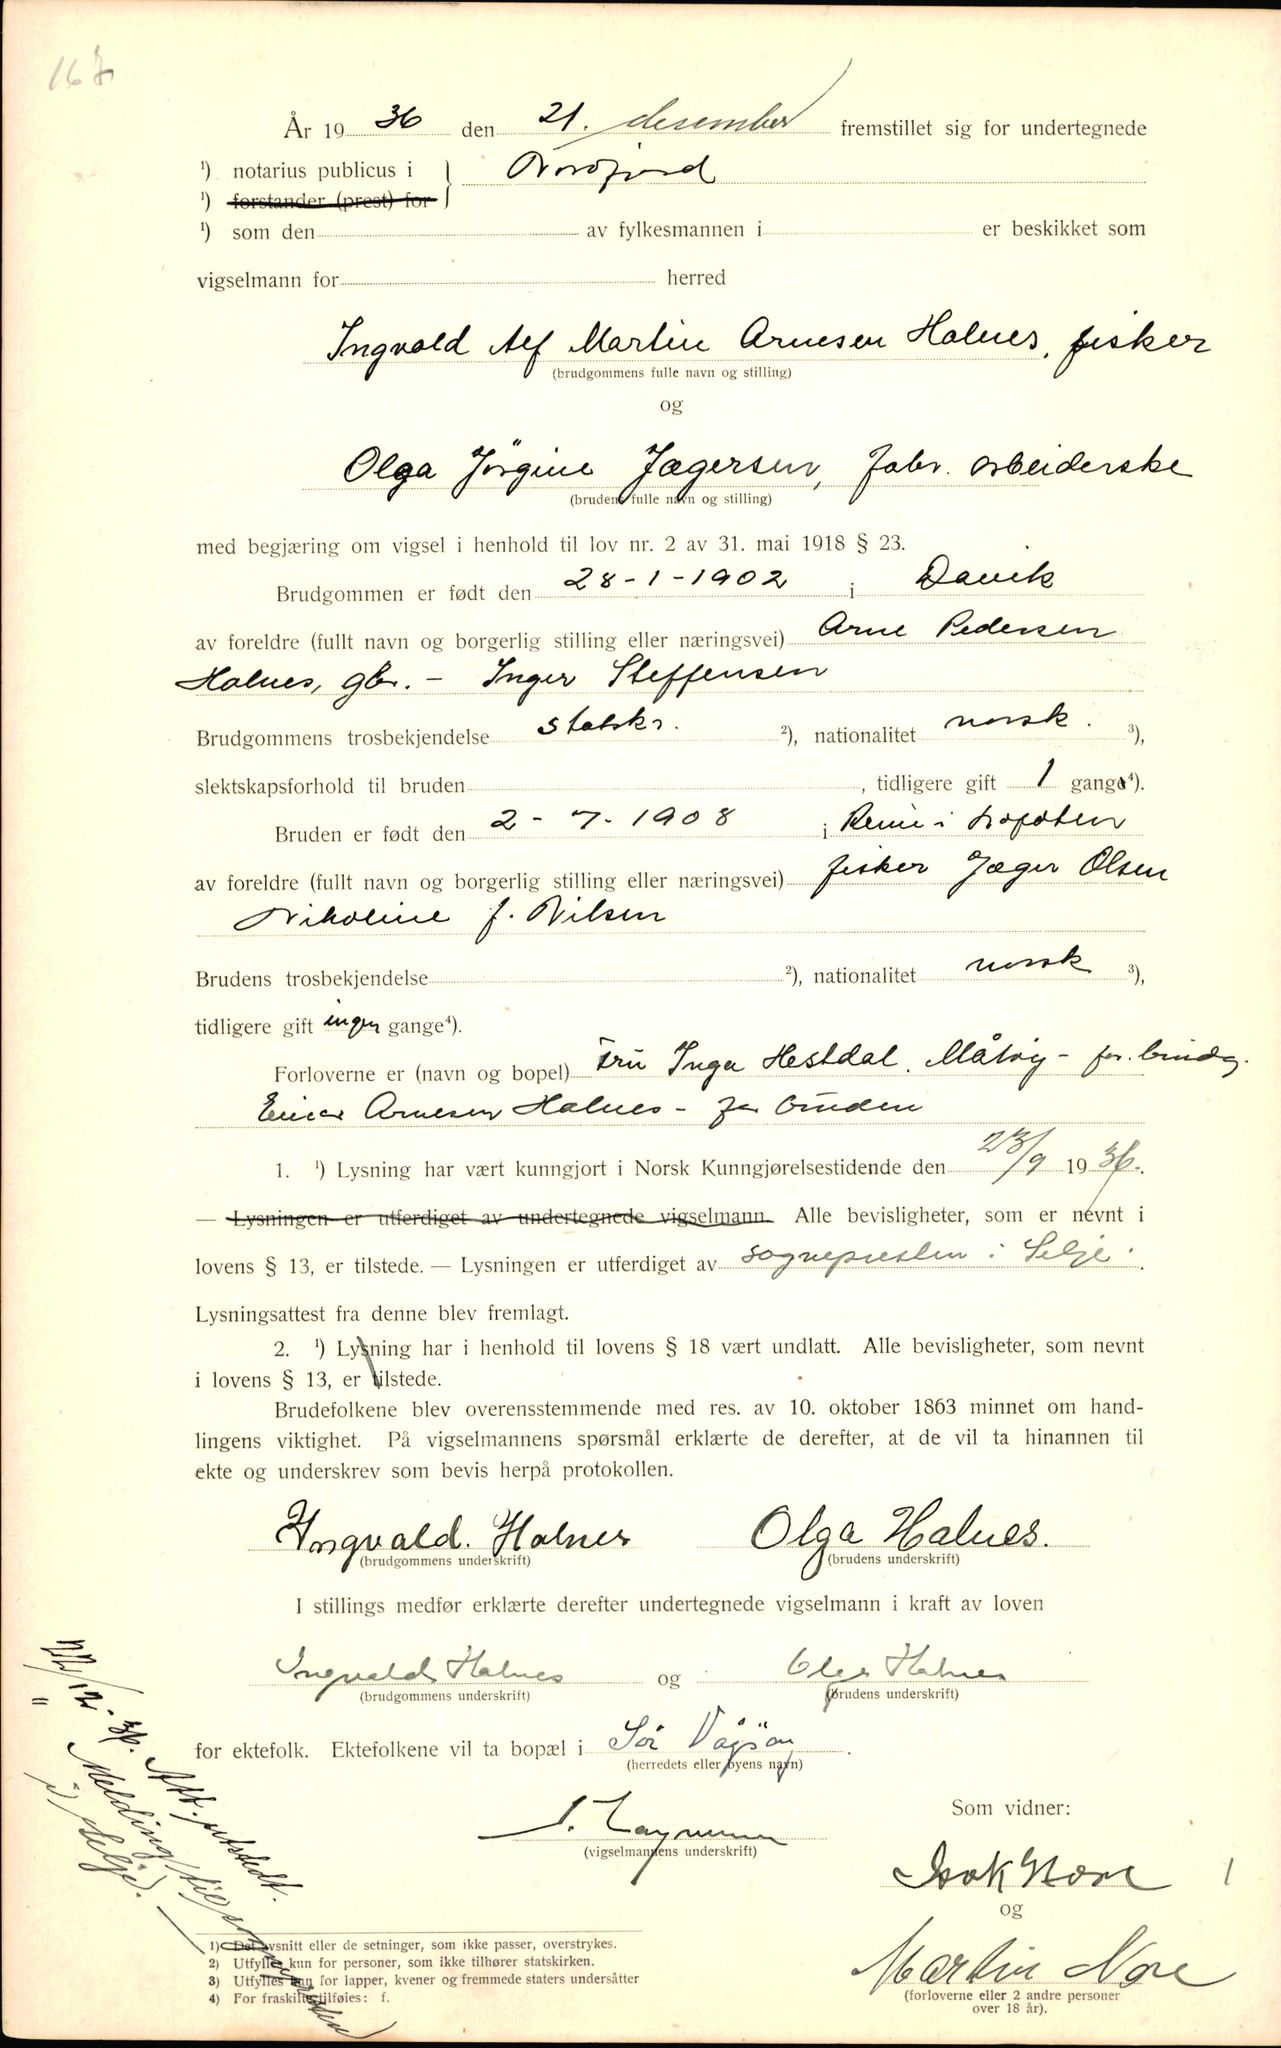 167
År 19 36 den 21. desember fremstillet sig for undertegnede
¹) notarius publicus i } Nordfjord
¹) forstander (prest) for
¹) som den av fylkesmannen i er beskikket som
vigselmann for herred
Ingvald Alf Martin Arnesen Halnes, fisker
(brudgommens fulle navn og stilling)
og
Olga Jörgine Jægersen, fabr. arbeiderske
(brudens fulle navn og stilling)
med begjæring om vigsel i henhold til lov nr. 2 av 31. mai 1918 § 23.
Brudgommen er født den 28-1-1902 i Davik
av foreldre (fullt navn og borgerlig stilling eller næringsvei) Arne Pedersen
Halnes, gbr. - Inger Steffensen
Brudgommens trosbekjendelse statskr. ²), nationalitet norsk. ³),
slektskapsforhold til bruden , tidligere gift 1 gange⁴).
Bruden er født den 2-7-1908 i Reine i Lofoten
av foreldre (fullt navn og borgerlig stilling eller næringsvei) fisker Jæger Olsen
Nikoline f. Nilsen
Brudens trosbekjendelse ²), nationalitet norsk ³),
tidligere gift ingen gange⁴).
Forloverne er (navn og bopel) Fru Inga Hestdal. Måløy - for brudg.
Einar Arnesen Halnes - for bruden
1. ¹) Lysning har vært kunngjort i Norsk Kunngjørelsestidende den 23/9 1936.
— Lysningen er utferdiget av undertegnede vigselmann. Alle bevisligheter, som er nevnt i
lovens § 13, er tilstede. — Lysningen er utferdiget av sognepresten i Selje.
Lysningsattest fra denne blev fremlagt.
2. ¹) Lysning har i henhold til lovens § 18 vært undlatt. Alle bevisligheter, som nevnt
i lovens § 13, er tilstede.
Brudefolkene blev overensstemmende med res. av 10. oktober 1863 minnet om hand-
lingens viktighet. På vigselmannens spørsmål erklærte de derefter, at de vil ta hinannen til
ekte og underskrev som bevis herpå protokollen.
Ingvald. Halnes Olga Halnes.
(brudgommens underskrift) (brudens underskrift)
I stillings medfør erklærte derefter undertegnede vigselmann i kraft av loven
Ingvald Halnes og Olga Halnes
(brudgommens underskrift) (brudens underskrift)
for ektefolk. Ektefolkene vil ta bopæl i Sör Vågsöy.
(herredets eller byens navn)
Som vidner:
(vigselmannens underskrift)
Isak Nore
og
Martin Nore
(forloverne eller 2 andre personer
over 18 år).
22/12-36. Att. utstedt.
" Melding til sognepresten
i Selje.
1) Det avsnitt eller de setninger, som ikke passer, overstrykes.
2) Utfylles kun for personer, som ikke tilhører statskirken.
3) Utfylles kun for lapper, kvener og fremmede staters undersåtter
4) For fraskilte tilføies: f.